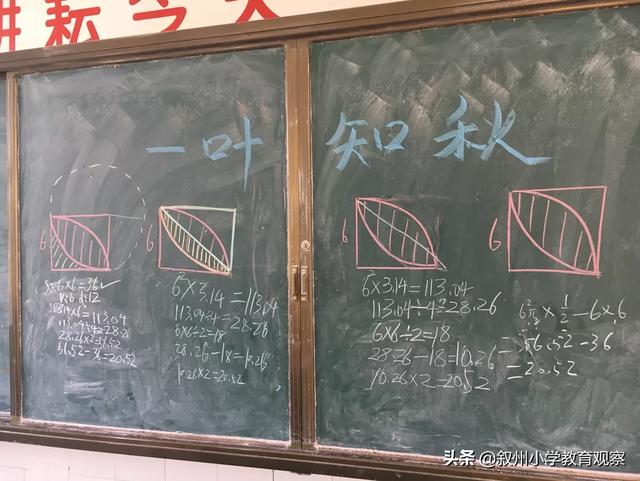 耕耘今天
一叶知秋
6
6×6=36
113.04÷4=28.26
28.26×2=56.52
56.52-36=20.52
6
6²×3.14=113.04
113.04÷4=28.26
6×6÷2=18
28.26-18=10.26
10.26×2=20.52
6
6²×3.14=113.04
113.04÷4=28.26
6×6÷2=18
28.26-18=10.26
10.26×2=20.52
6
6²π×1/2-6×6
=56.52-36
=20.52
头条 @叙州小学教育观察